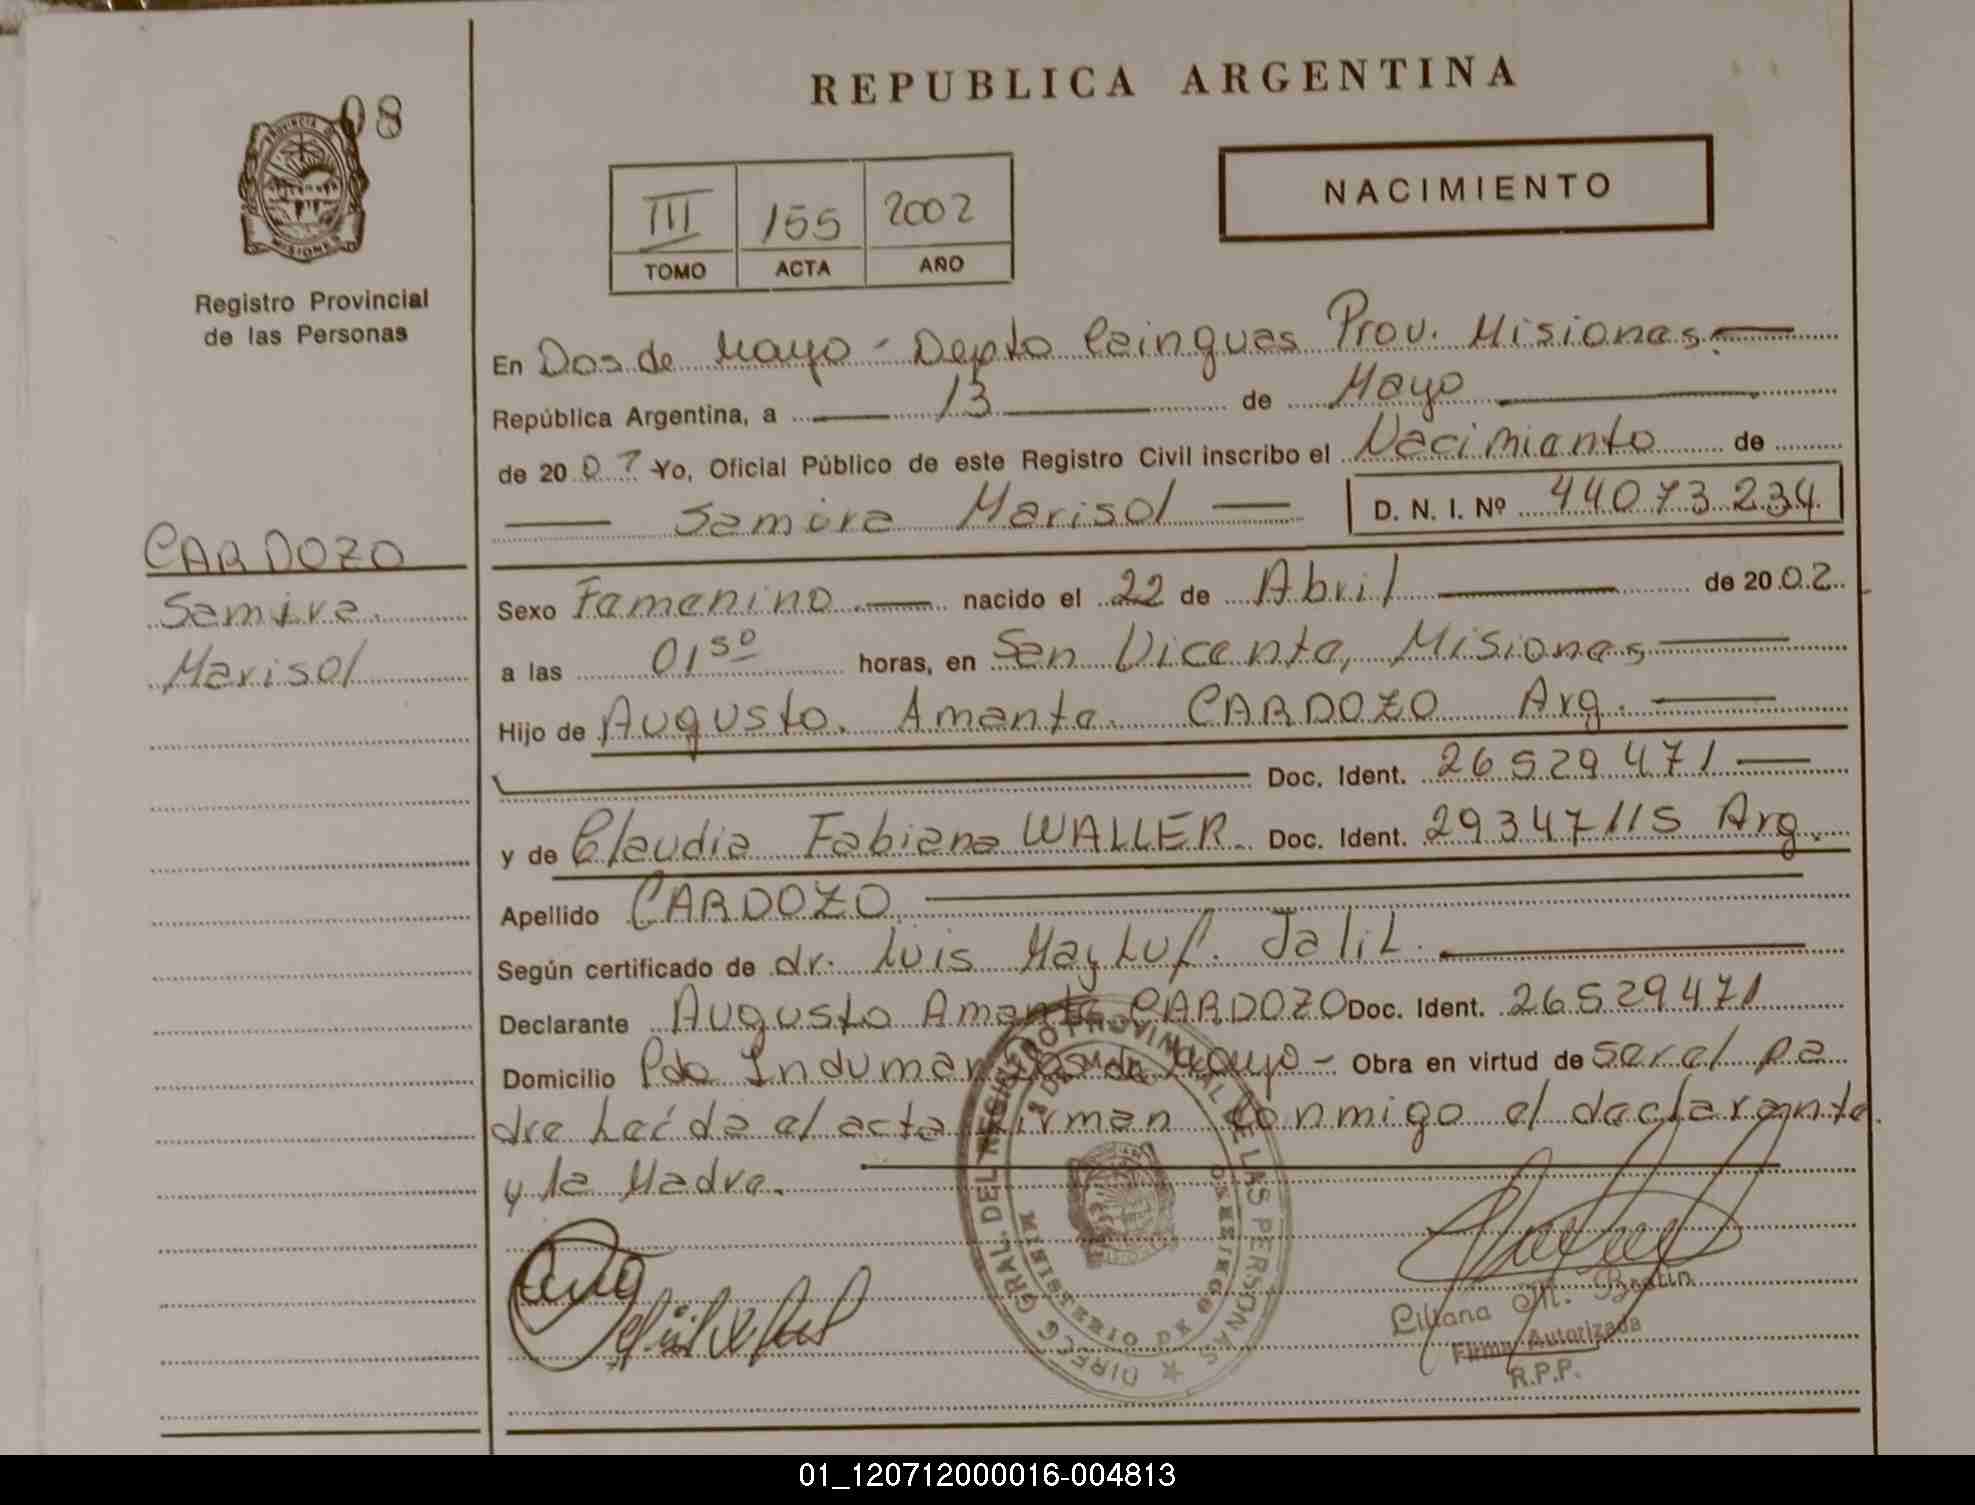 REPUBLICA ARGENTINA
08
PROVINCIA DE
MISIONES
Registro Provincial
de las Personas
III 155 2002
TOMO ACTA AÑO
NACIMIENTO
En Dos de Mayo - Depto Cainguas Prov. Misiones.
República Argentina, a 13 de Mayo
de 20 0 Yo, Oficial Público de este Registro Civil inscribo el Nacimiento de
Samira Marisol D. N. I. Nº 44073.234
CARDOZO
Samira
Marisol
Sexo Femenino nacido el 22 de Abril de 20 02
a las 01 50 horas, en San Vicente, Misiones
Hijo de Augusto Amante CARDOZO Arg.
Doc. Ident. 26529471
y de Claudia Fabiana WALLER Doc. Ident. 29347115 Arg.
Apellido CARDOZO
Según certificado de dr. Luis Jalil
Declarante Augusto Amante CARDOZO Doc. Ident. 26529471
Domicilio Pdo Mayo - Obra en virtud de ser el pa
dre Leída el acta firman conmigo el declarante
y la Madre.
DIREC GRAL. DEL REGISTRO PROVINCIAL DE LAS PERSONAS
MINISTERIO DE GOBIERNO
Liliana M.
Firma Autorizada
R.P.P.
01_120712000016-004813